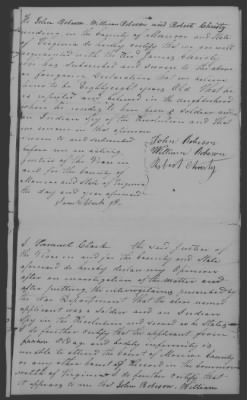 We John Roberson William Roberson and Robert Christy
residing in the County of Monroe and State
of Virginia do certify that we are well
acquainted with the
has subscribed and sworn to the above
or foregoing Declaration that we believe
him to be Eighty eight years old That he
is reputed and believed in the neighborhood
where he resides to have been a soldier and
an Indian Spy of the Revolution and that
we concur in that opinion
Sworn to and subscribed
before me an acting
Justice of the Peace in
and for the County of
Monroe and State of Virginia
the day and year aforesaid
Saml Clark JP.
John Roberson
William Roberson
Robert Christy
I, Samuel Clark the said Justice of
the Peace in and for the County and State
aforesaid do hereby declare my opinion
after an investigation of the matter and
after putting the interrogatories prescribed by
the War Department that the above named
applicant was a soldier and an Indian
Spy in the Revolution and served as he states
I do further certify that the applicant from
old age and bodily infirmity is
unable to attend the Court of Monroe County
or any other Court of Record in the common
wealth of Virginia I do further certify that
it appears to me that John Roberson, William